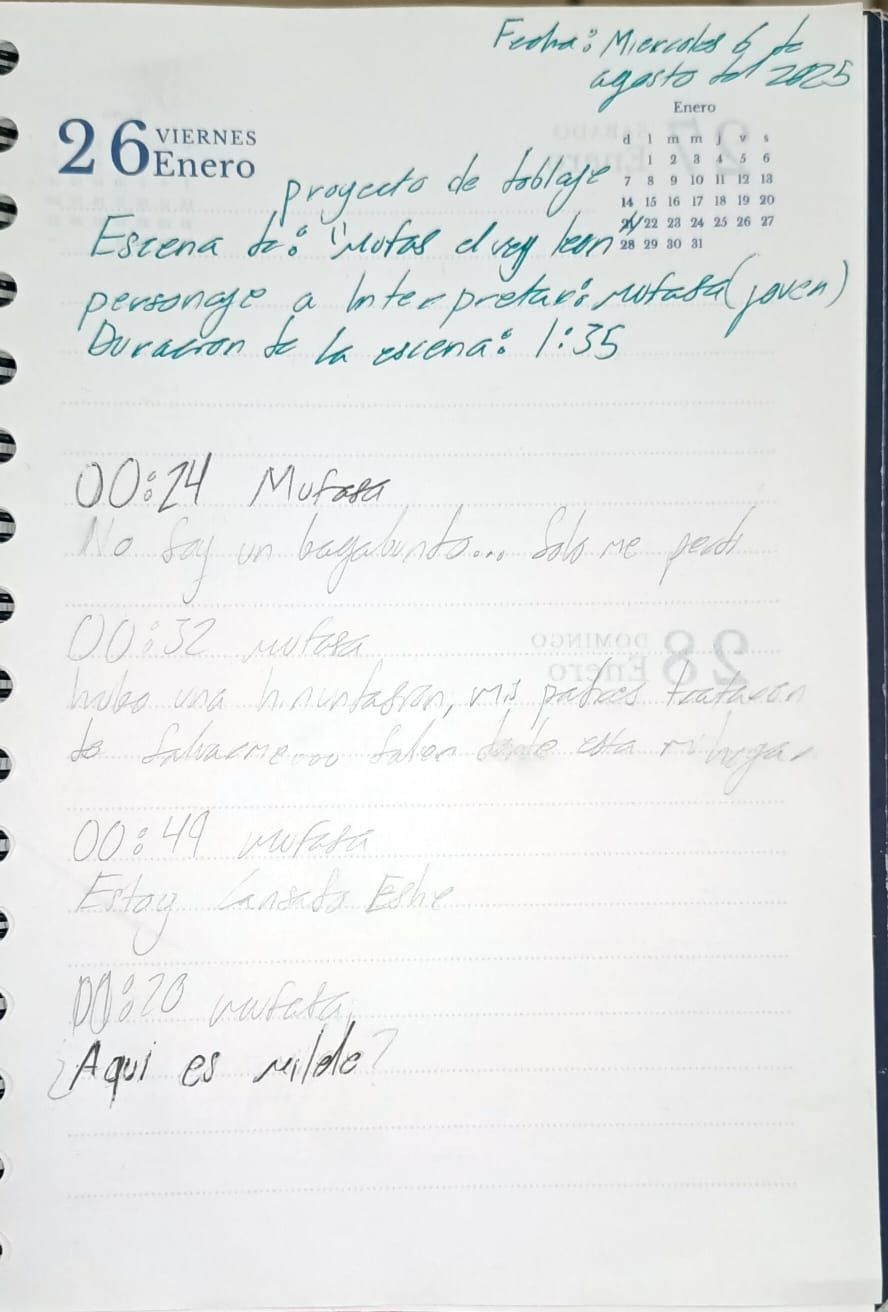 Fecha: Miercoles 6 de
agosto del 2025
26 VIERNES
Enero
Enero
d l m m j v s
1 2 3 4 5 6
7 8 9 10 11 12 13
14 15 16 17 18 19 20
21 22 23 24 25 26 27
28 29 30 31
proyecto de doblaje
Escena de: "Mufas el rey leon"
personaje a Interpretar: Mufasa (joven)
Duracion de la escena: 1:35
00:24 Mufasa
No soy un bagabundo... Solo me perdi
00:32 mufasa
hubo una hinundasion, mis padres trataron
de salvarme... saben donde esta mi hogar
00:49 mufasa
Estoy Cansado Eshe
00:20 mufasa
¿Aqui es milele?
28 DOMINGO
Enero